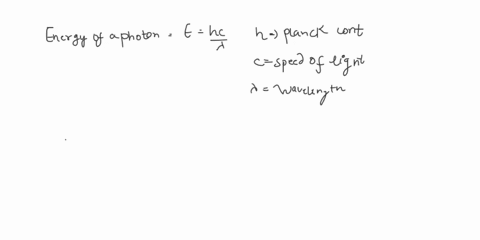 Energy of a photon = E = hc/λ h → planck cont
c = speed of light
λ = wavelength